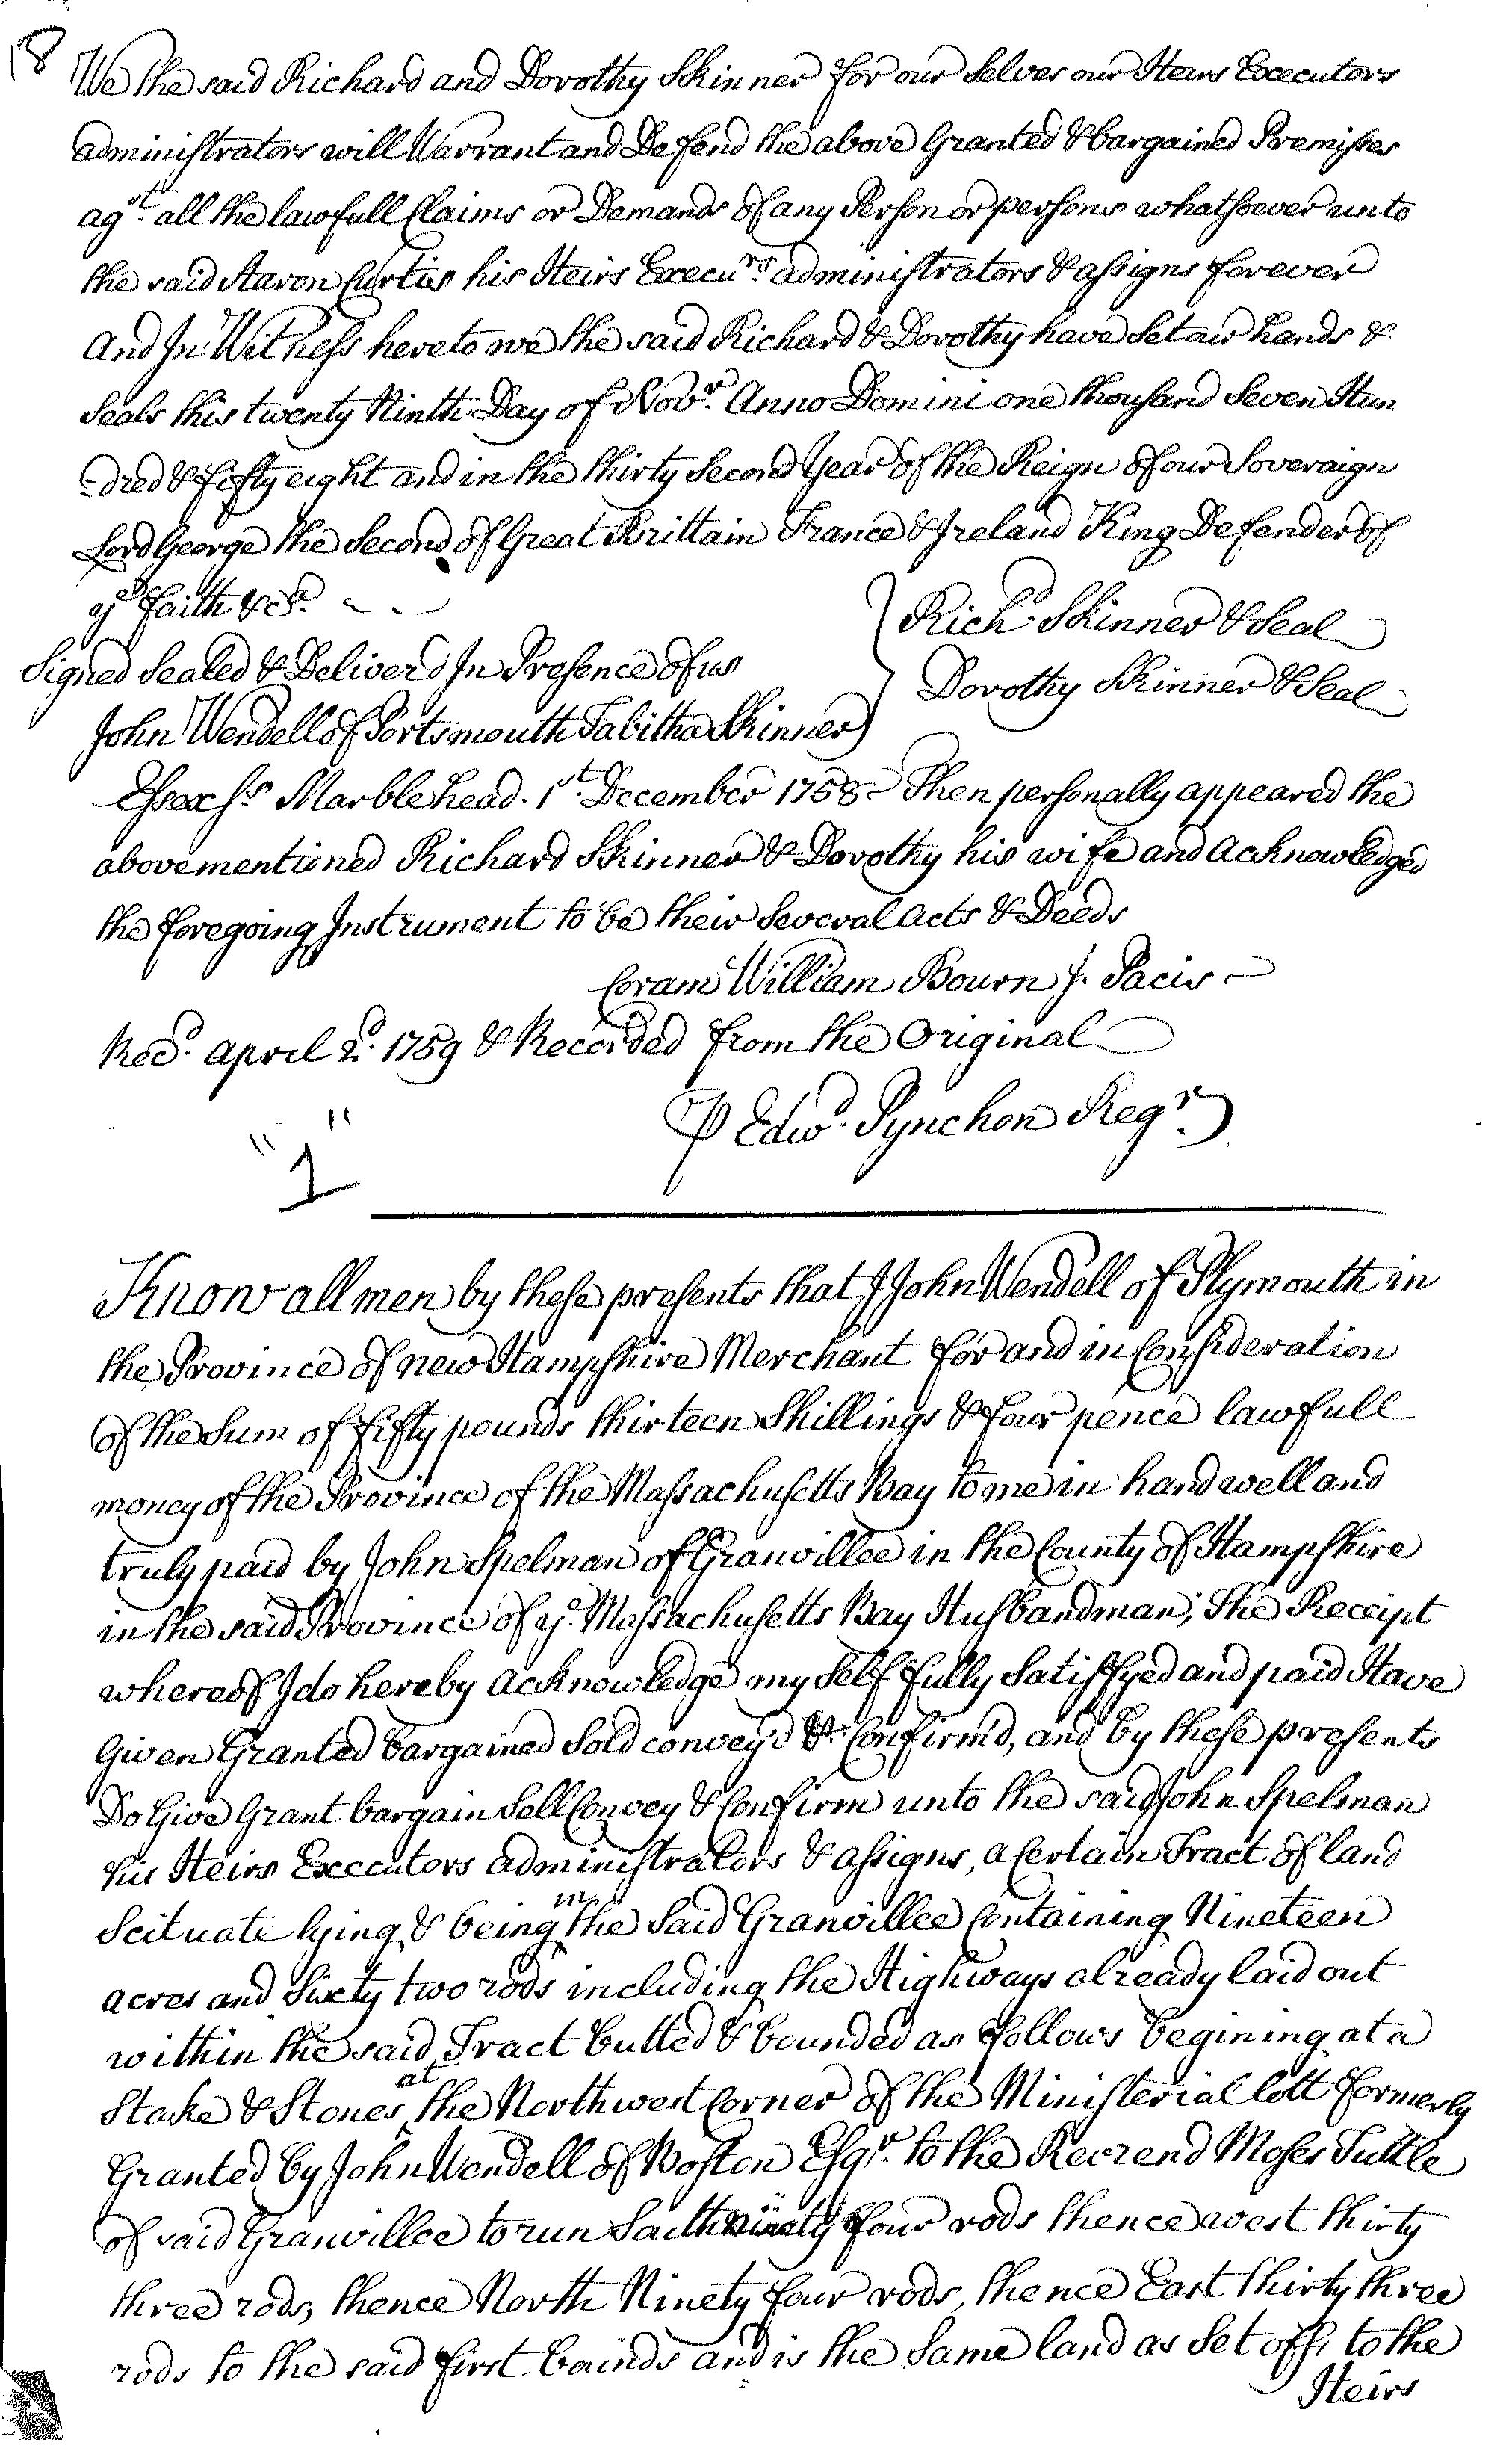 18
We the said Richard and Dorothy Skinner for our Selves our Heirs Executors
administrators will Warrant and Defend the above Granted & bargained Premisses
agst. all the lawfull Claims or Demands of any Person or persons whatsoever unto
the said Aaron Curtis his Heirs Execurs. administrators & assigns forever
And In Witness hereto we the said Richard & Dorothy have set our hands &
Seals this twenty Ninth Day of Novr. Anno Domini one thousand Seven Hun
-dred & fifty eight and in the thirty Second Year of the Reign of our Soveraign
Lord George the Second of Great Brittain France & Ireland King Defender of
ye faith &c.
Richd. Skinner & Seal
Signed Sealed & Deliverd In Presence of us
Dorothy Skinner & Seal
John Wendell of Portsmouth Tabitha Skinner
Essex ss. Marblehead. 1st. December 1758 - Then personally appeared the
abovementioned Richard Skinner & Dorothy his wife and Acknowledged
the foregoing Instrument to be their Several Acts & Deeds
Coram William Bourn J. Pacis -
Recd. April 2d. 1759 & Recorded from the Original
P Edwd. Pynchon Regr.
"1"
Know all men by these presents that I John Wendell of Plymouth in
the Province of new Hampshire Merchant for and in Consideration
of the Sum of fifty pounds thirteen Shillings & four pence lawfull
money of the Province of the Massachusetts Bay to me in hand well and
truly paid by John Spelman of Granvillee in the County of Hampshire
in the said Province of ye. Massachusetts Bay Husbandman; The Receipt
whereof I do hereby Acknowledge my Self fully Satisfyed and paid Have
Given Granted bargained Sold convey'd & Confirm'd, and by these presents
Do Give Grant bargain Sell Convey & Confirm unto the said John Spelman
his Heirs Executors administrators & assigns, a Certain Tract of land
Scituate lying & being in the Said Granvillee Containing Nineteen
acres and Sixty two rods including the Highways already laid out
within the said Tract butted & bounded as follows begining at a
Stake & Stones at the Northwest Corner of the Ministerial lott formerly
Granted by John Wendell of Boston Esqr. to the Recrend Moses Tuttle
of said Granvillee to run South ninety four rods thence west thirty
three rods, thence North Ninety four rods, thence East thirty three
rods to the said first bounds and is the Same land as Set off to the
Heirs